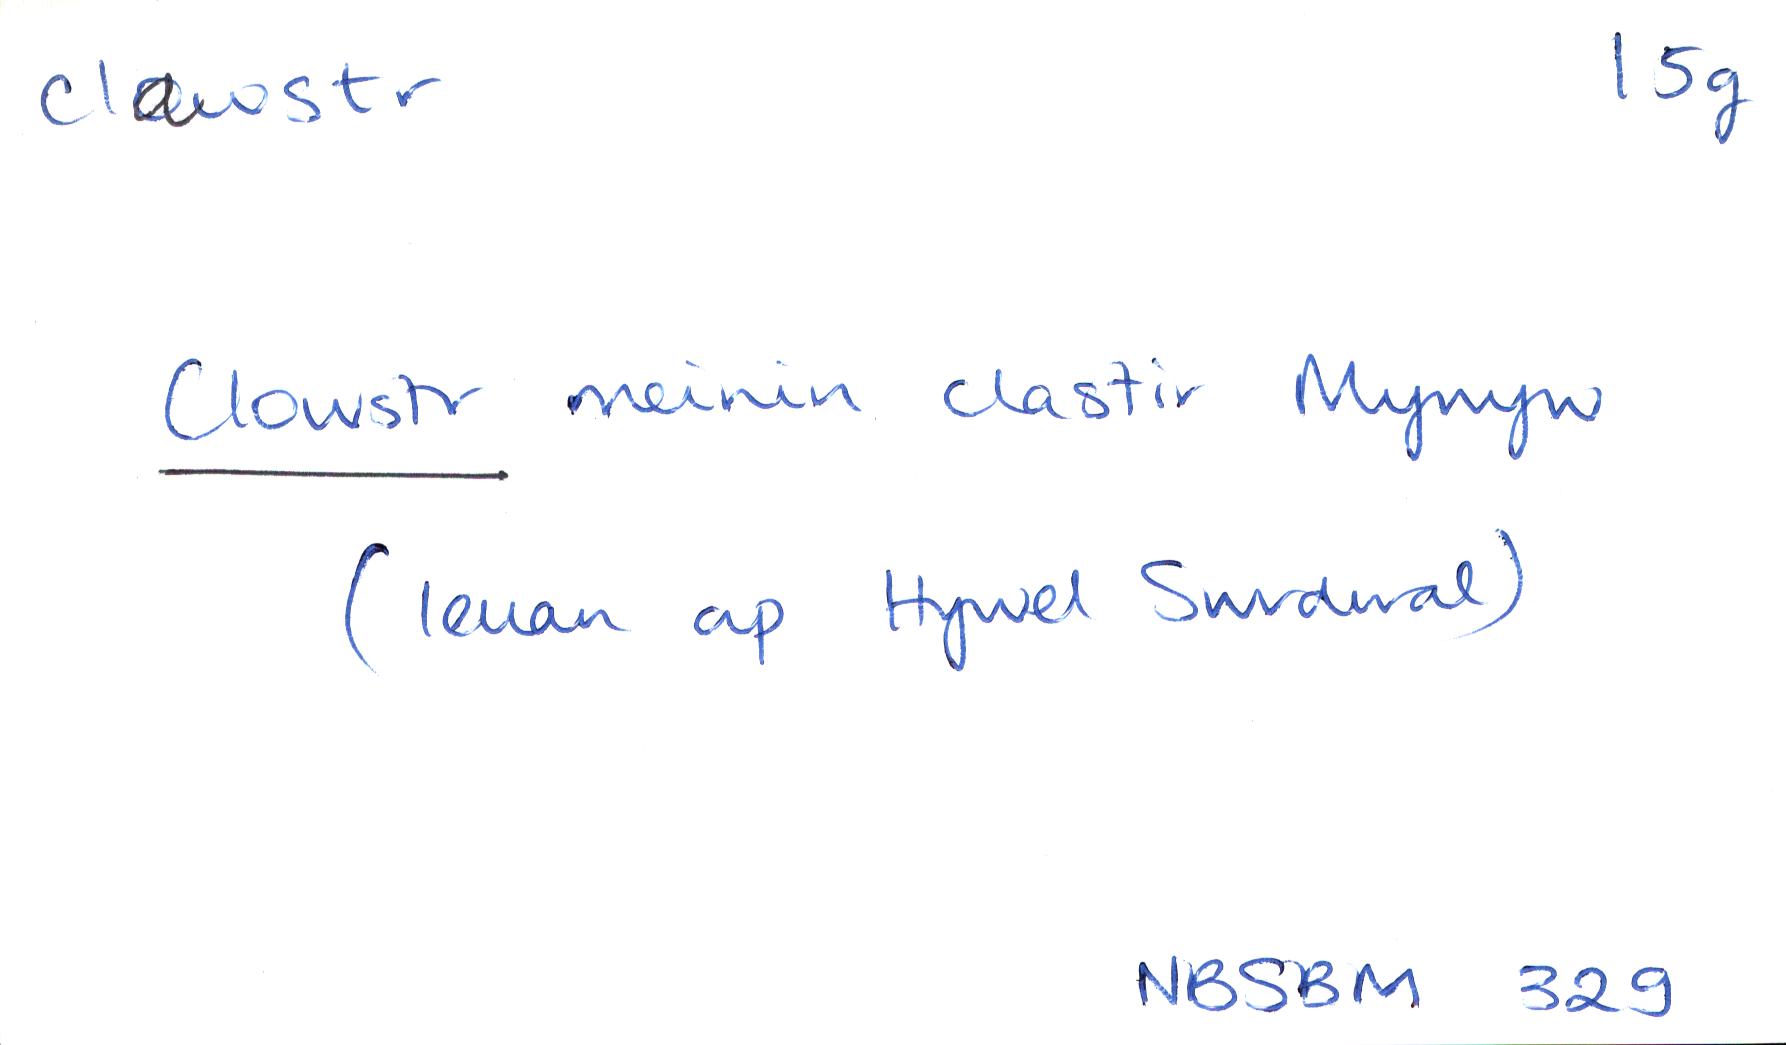 clawstr 15g
Clowstr meinin clastir Mynyw
(Ieuan ap Hywel Swrdwal)
NBSBM 329